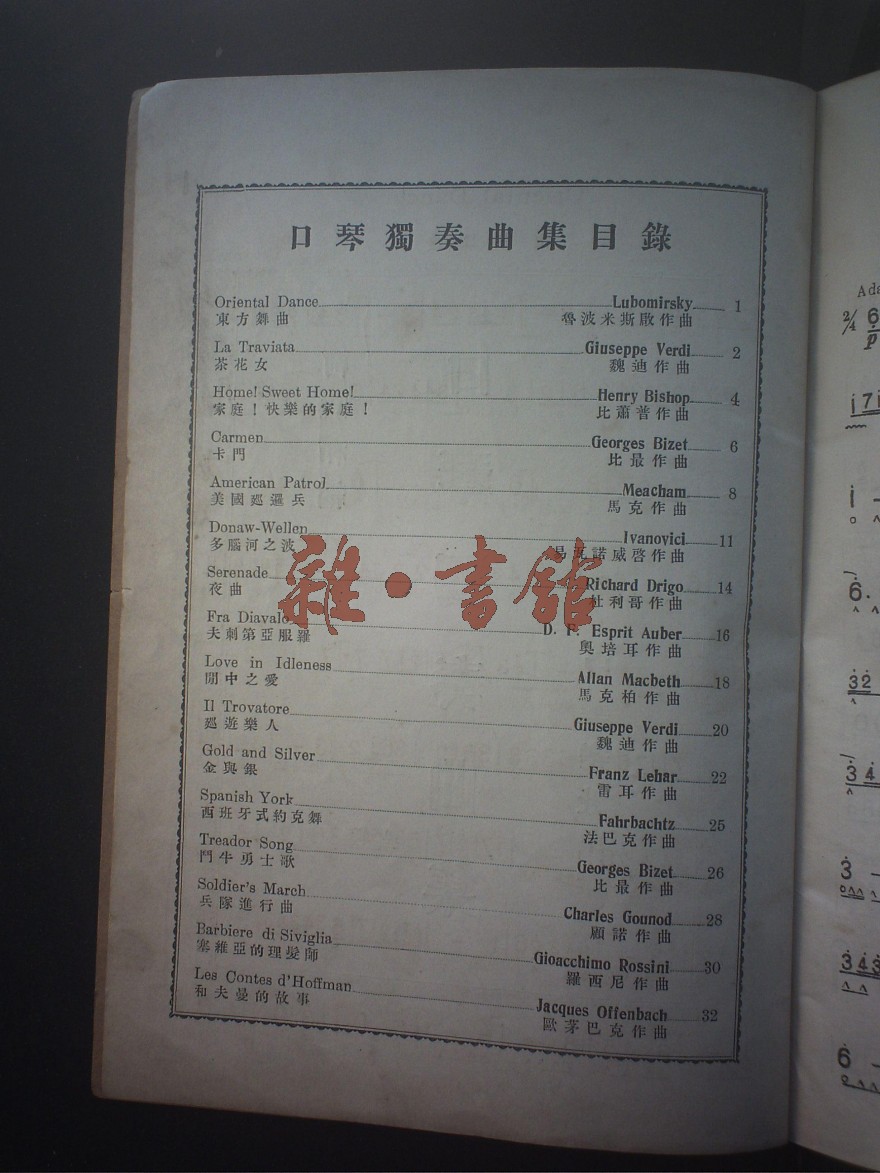 口琴獨奏曲集目錄
Oriental Dance Lubomirsky 1
東方舞曲 魯波米斯啟作曲
La Traviata Giuseppe Verdi 2
茶花女 魏迪作曲
Home! Sweet Home! Henry Bishop 4
家庭！快樂的家庭！ 比蕭普作曲
Carmen Georges Bizet 6
卡門 比最作曲
American Patrol Meacham 8
美國廵邏兵 馬克作曲
Donaw-Wellen Ivanovici 11
多腦河之波 易瓦諾威啓作曲
Serenade Richard Drigo 14
夜曲 杜利哥作曲
Fra Diavalo D. F. Esprit Auber 16
夫刺第亞服羅 奧培耳作曲
Love in Idleness Allan Macbeth 18
閒中之愛 馬克柏作曲
Il Trovatore Giuseppe Verdi 20
廵遊樂人 魏迪作曲
Gold and Silver Franz Lehar 22
金與銀 雷耳作曲
Spanish York Fahrbachtz 25
西班牙式約克舞 法巴克作曲
Treador Song Georges Bizet 26
鬥牛勇士歌 比最作曲
Soldier's March Charles Gounod 28
兵隊進行曲 顧諾作曲
Barbiere di Siviglia Gioacchimo Rossini 30
塞維亞的理髮師 羅西尼作曲
Les Contes d'Hoffman Jacques Offenbach 32
和夫曼的故事 歐茅巴克作曲
雜·書館